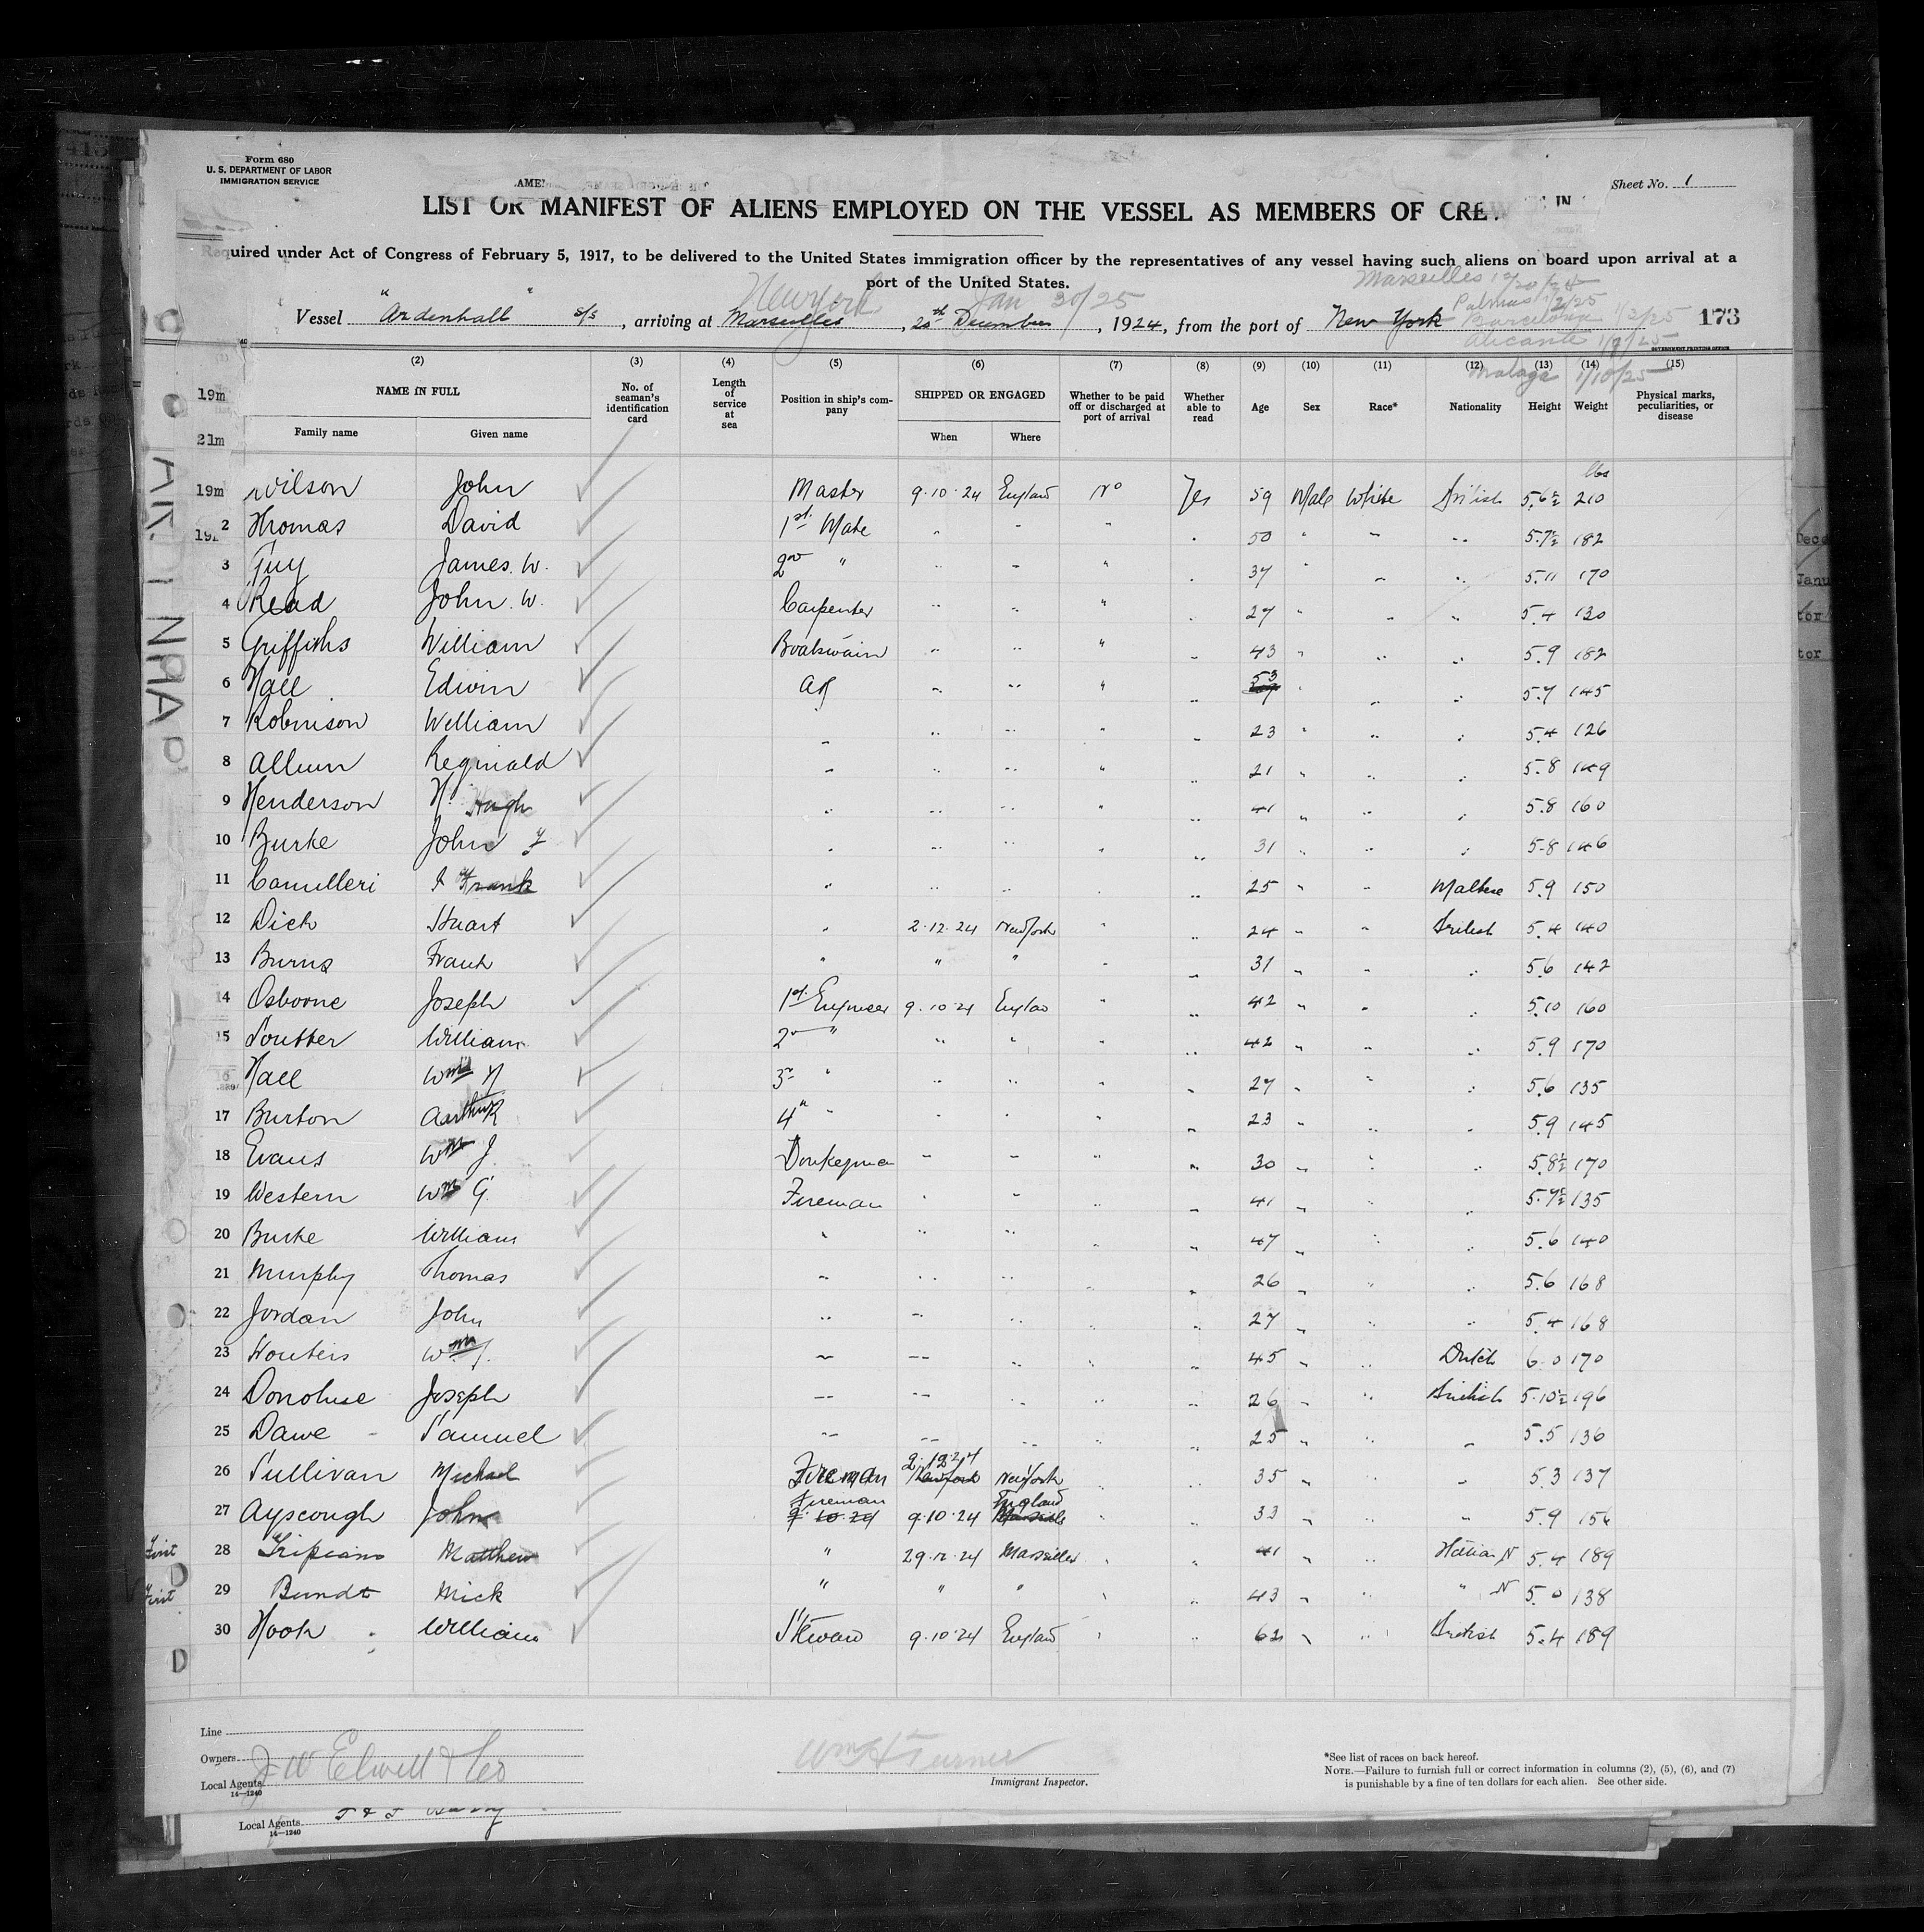 Form 680
U. S. DEPARTMENT OF LABOR
IMMIGRATION SERVICE
Sheet No. 1
LIST OR MANIFEST OF ALIENS EMPLOYED ON THE VESSEL AS MEMBERS OF CREW
Required under Act of Congress of February 5, 1917, to be delivered to the United States immigration officer by the representatives of any vessel having such aliens on board upon arrival at a
port of the United States.
Marseilles 12/20/24
New York Jan 30/25
Palmas 1/2/25
Vessel "Ardenhall" s/s, arriving at Marseilles, 20th December, 1924, from the port of New York
Barcelona 1/2/25
173
Alicante 1/9/25
GOVERNMENT PRINTING OFFICE
Malaga 1/10/25
(2) (3) (4) (5) (6) (7) (8) (9) (10) (11) (12) (13) (14) (15)
NAME IN FULL No. of seaman's identification card Length of service at sea Position in ship's company SHIPPED OR ENGAGED Whether to be paid off or discharged at port of arrival Whether able to read Age Sex Race* Nationality Height Weight Physical marks, peculiarities, or disease
Family name Given name When Where
19m
21m
lbs
19m Wilson John ✓ Master 9.10.24 England No Yes 59 Male White British 5.6½ 210
2 Thomas David ✓ 1st Mate " " " " 50 " " " 5.7½ 182
3 Guy James. W. ✓ 2nd " " " " " 37 " " " 5.11 170
4 Read John. W. ✓ Carpenter " " " " 27 " " " 5.4 130
5 Griffiths William ✓ Boatswain " " " " 43 " " " 5.9 182
6 Hall Edwin ✓ AB " " " " 53 " " " 5.7 145
7 Robinson William ✓ " " " " " 23 " " " 5.4 126
8 Allum Reginald ✓ " " " " " 21 " " " 5.8 149
9 Henderson H. Hugh ✓ " " " " " 41 " " " 5.8 160
10 Burke John F ✓ " " " " " 31 " " " 5.8 146
11 Camilleri Frank ✓ " " " " " 25 " " Maltese 5.9 150
12 Dick Stuart ✓ " 2.12.24 New York " " 24 " " British 5.4 140
13 Burns Frank ✓ " " " " " 31 " " " 5.6 142
14 Osborne Joseph ✓ 1st Engineer 9.10.24 England " " 42 " " " 5.10 160
15 Soutter William ✓ 2nd " " " " " 42 " " " 5.9 170
16 Hall Wm H ✓ 3rd " " " " " 27 " " " 5.6 135
17 Burton Arthur R ✓ 4th " " " " " 23 " " " 5.9 145
18 Evans Wm J. ✓ Donkeyman " " " " 30 " " " 5.8½ 170
19 Western Wm G. ✓ Fireman " " " " 41 " " " 5.7½ 135
20 Burke William ✓ " " " " " 47 " " " 5.6 140
21 Murphy Thomas ✓ " " " " " 26 " " " 5.6 168
22 Jordan John ✓ " " " " " 27 " " " 5.4 168
23 Wouters Wm J. ✓ " " " " " 45 " " Dutch 6.0 170
24 Donohue Joseph ✓ " " " " " 26 " " British 5.10½ 196
25 Dawe Samuel ✓ " " " " " 25 " " " 5.5 136
26 Sullivan Michael ✓ Fireman 2.12.24 New York New York " " 35 " " " 5.3 137
27 Ayscough John ✓ Fireman 9.10.24 9.10.24 England " " 33 " " " 5.9 156
First 28 Tripiano Matthew ✓ " 29.12.24 Marseilles " " 41 " " Italian N 5.4 189
First 29 Bundt Mick ✓ " " " " " 43 " " " N 5.0 138
30 Hook William ✓ Steward 9.10.24 England " " 62 " " British 5.4 189
Line
Owners
J W Elwell & Co
Local Agents
14—1240
Wm H Turner
Immigrant Inspector.
*See list of races on back hereof.
NOTE.—Failure to furnish full or correct information in columns (2), (5), (6), and (7)
is punishable by a fine of ten dollars for each alien. See other side.
Local Agents
14—1240